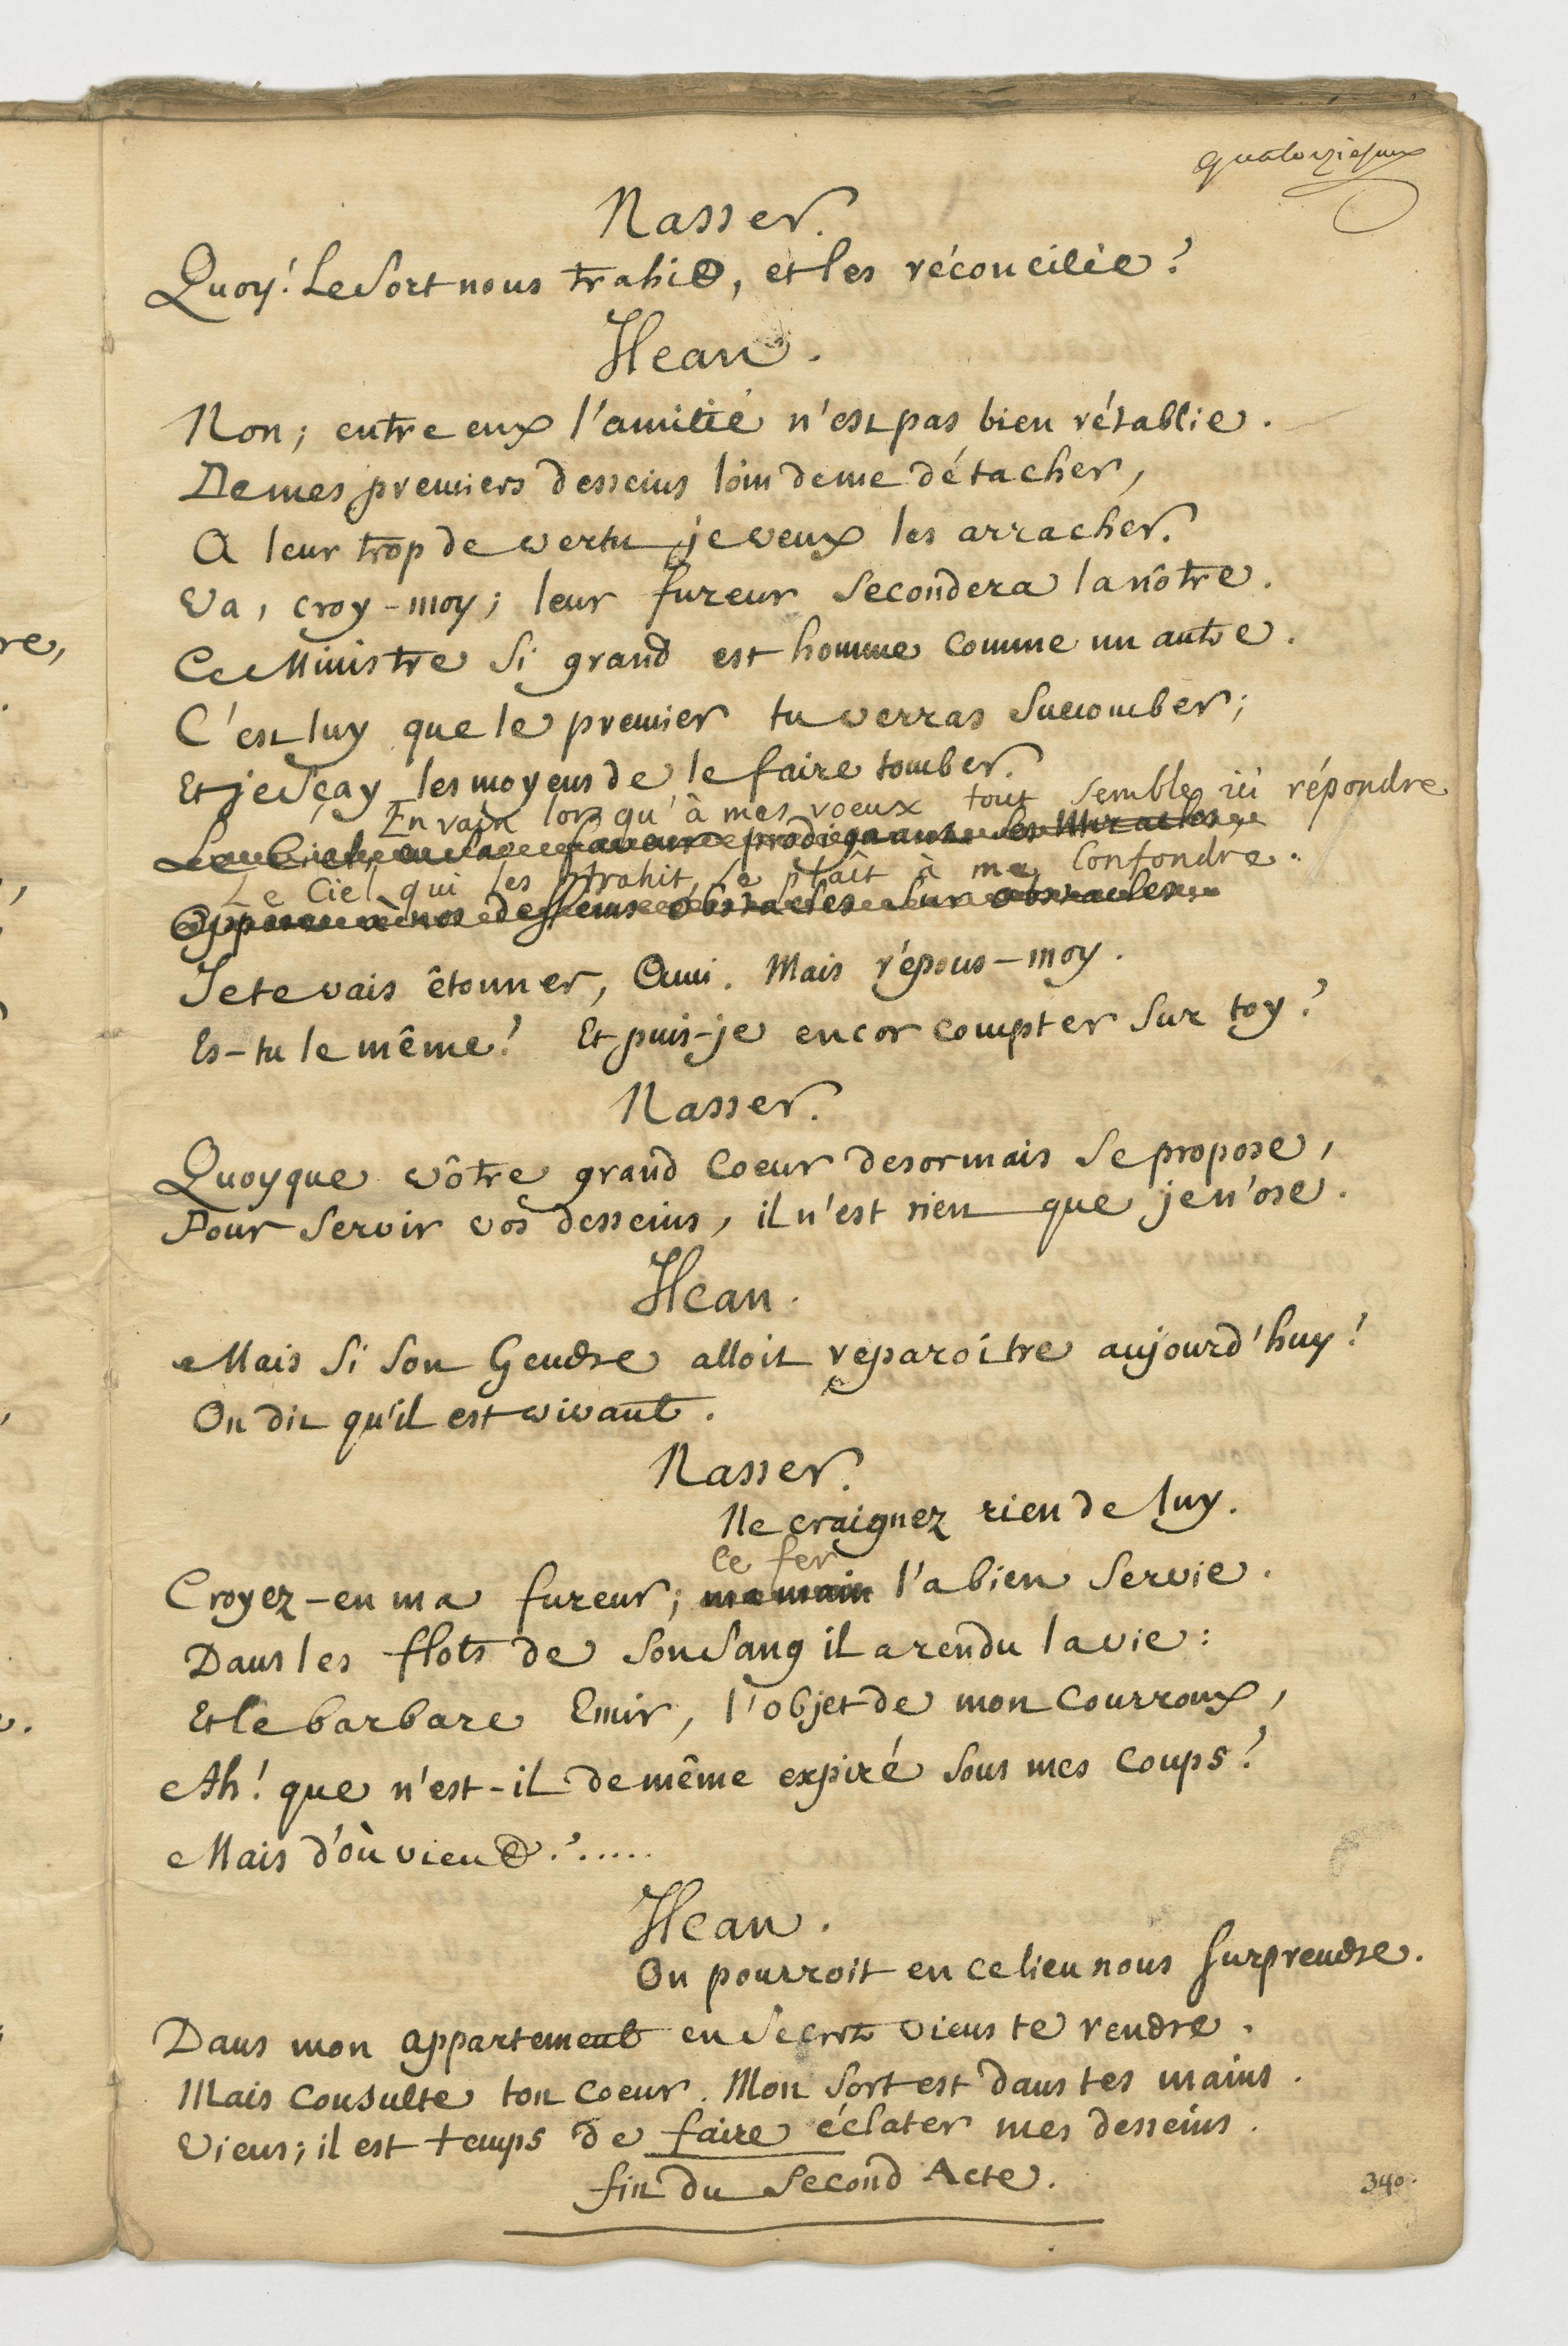 quatorziesme
Nasser.
Quoy! Le Sort nous trahit, et les réconcilie?
Hean.
Non; entre eux l'amitié n'est pas bien rétablie.
De mes premiers desseins loin de me détacher,
A leur trop de vertu je veux les arracher.
Va, croy-moy; leur fureur Secondera la nôtre.
Ce Ministre Si grand est homme comme un autre.
C'est luy que le premier tu verras Succomber;
Et je Sçay les moyens de le faire tomber.
En vain lorsqu'à mes voeux tout Semble ici répondre
Le Ciel, en la faveur prodiguant les Miracles,
Le Ciel qui les trahit, se plaît à me Confondre.
Oppose à nos desseins obstacles Sur obstacles.
Je te vais étonner, Ami. Mais répons-moy.
Es-tu le même? Et puis-je encor compter Sur toy?
Nasser.
Quoyque vôtre grand Coeur desormais Se propose,
Pour Servir vos desseins, il n'est rien que je n'ose.
Hean.
Mais Si Son Gendre alloit reparoître aujourd'huy!
On dit qu'il est vivant.
Nasser.
Ne craignez rien de luy.
le fer
Croyez-en ma fureur; ma main l'a bien Servie.
Dans les flots de Son Sang il a rendu la vie:
Et le barbare Emir, l'objet de mon Courroux,
Ah! que n'est-il de même expiré Sous mes Coups?
Mais d'où vient?.....
Hean.
On pourroit en ce lieu nous Surprendre.
Dans mon appartement en Secret viens te rendre.
Mais Consulte ton Coeur. Mon Sort est dans tes mains.
Viens; il est temps de faire éclater mes desseins.
fin du Second Acte.
340.